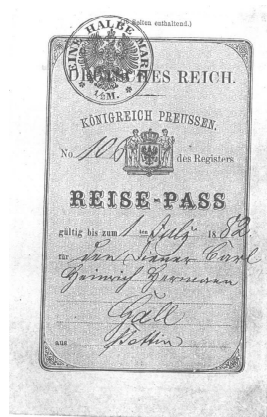 Seiten enthaltend.)
EINE HALBE MARK
½M.
DEUTSCHES REICH.
KÖNIGREICH PREUSSEN.
No. 106 des Registers
REISE-PASS
gültig bis zum 1 ten July 1882.
für den Diener Carl
Heinrich Hermann
Gall
aus Stettin